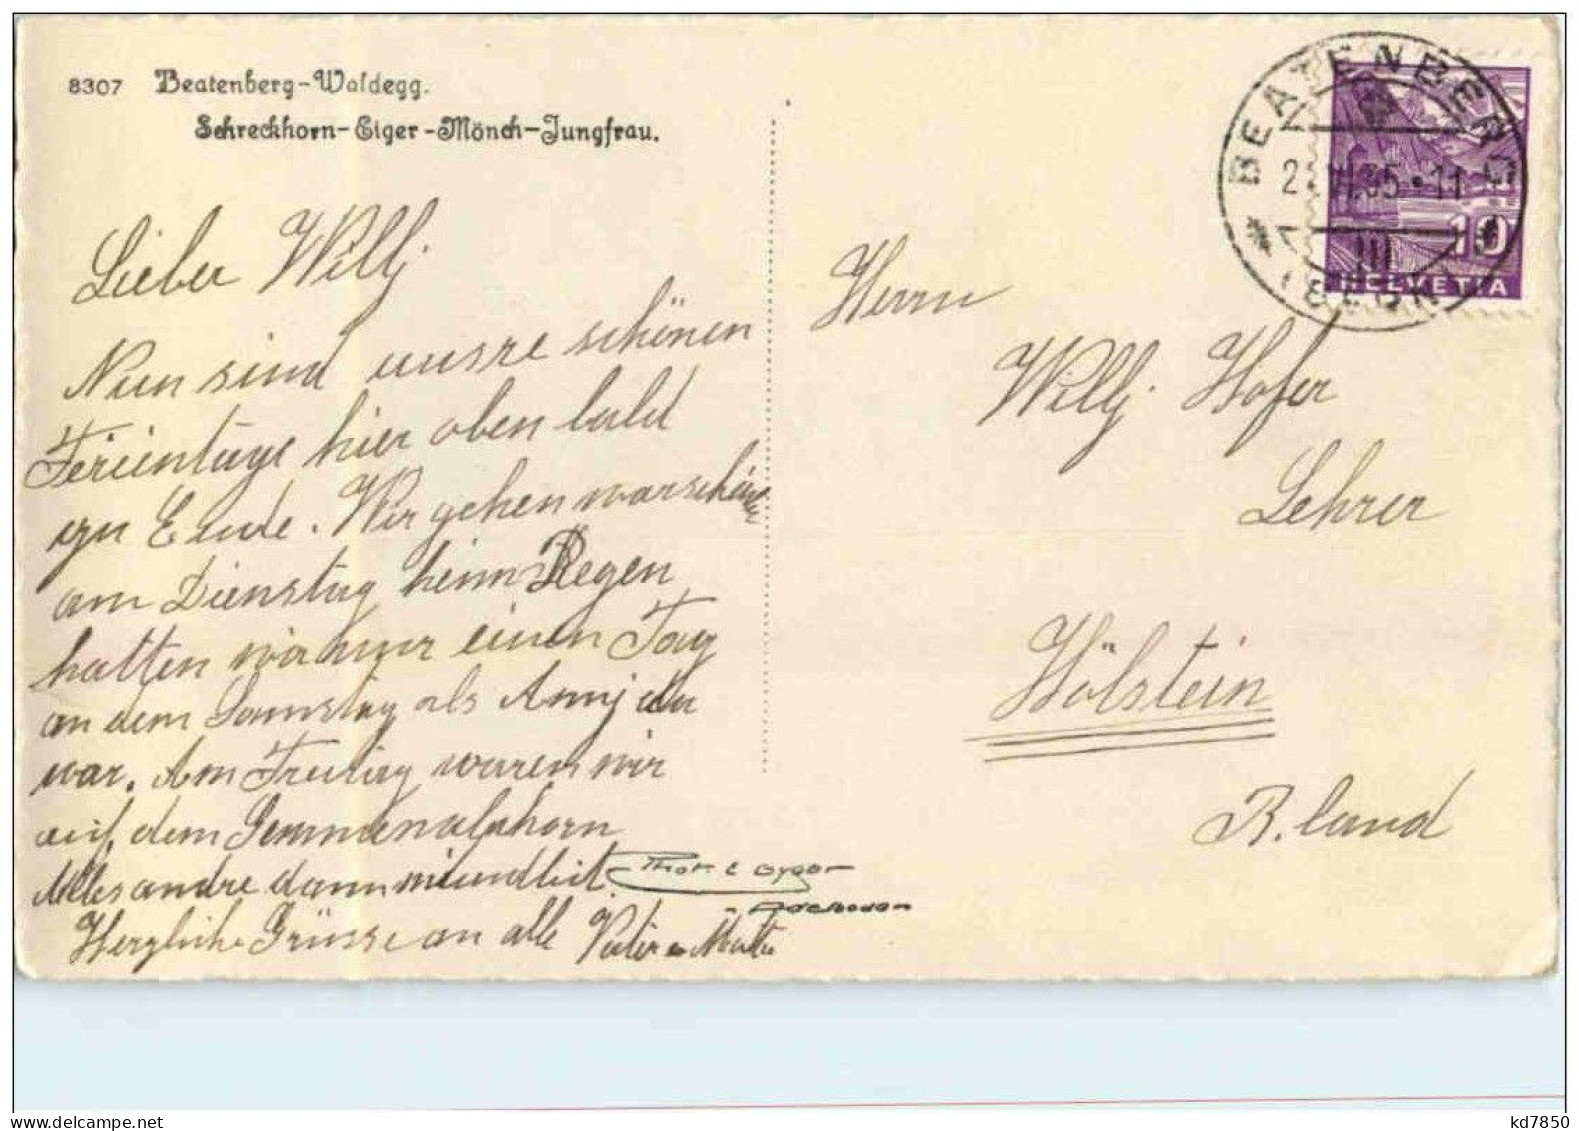 8307 Beatenberg-Waldegg.
Schreckhorn-Eiger-Mönch-Jungfrau.
Lieber Willj
Nun sind unsre schönen
Ferientage hier oben bald
zu Ende. Wir gehen warschein
am Dienstag heim Regen
hatten wir nur einen Tag
an dem Samstag als Annj da
war. Am Freitag waren wir
auf dem Gemmenalphorn
Alles andre dann mündlich
Herzliche Grüsse an alle Vater u Mutter
Phot. E Gyger
Adelboden
BEATENBERG
VI.35.11
III
(BERN)
10
HELVETIA
Herrn
Willj Hofer
Lehrer
Hölstein
B.land
kd7850